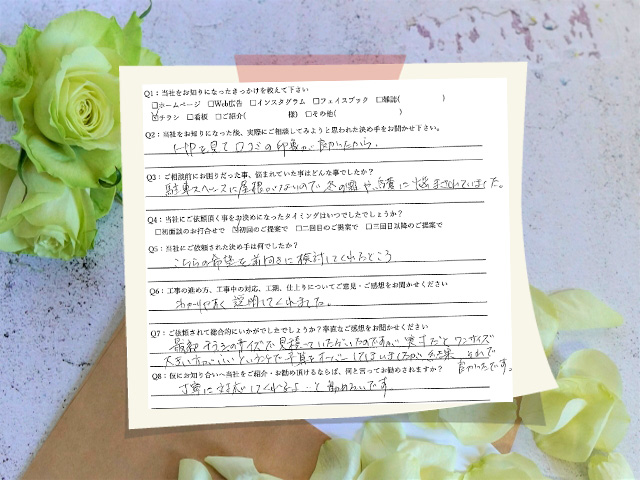 Q1：当社をお知りになったきっかけを教えて下さい
□ホームページ □Web広告 □インスタグラム □フェイスブック □雑誌( )
☑チラシ □看板 □ご紹介( 様) □その他( )
Q2：当社をお知りになった後、実際にご相談してみようと思われた決め手をお聞かせ下さい。
を見て口コミの印象が良かったから。
Q3：ご相談前にお困りだった事、悩まれていた事はどんな事でしたか？
駐車スペースに屋根がないので冬の霜や、に悩まされていました。
Q4：当社にご依頼頂く事をお決めになったタイミングはいつでしたでしょうか？
□初面談のお打合せで ☑初回のご提案で □二回目のご提案で □三回目以降のご提案で
Q5：当社にご依頼された決め手は何でしたか？
こちらの希望を前向きに検討してくれたところ
Q6：工事の進め方、工事中の対応、工期、仕上りについてご意見・ご感想をお聞かせください
わかりやすく説明してくれました。
Q7：ご依頼されて総合的にいかがでしたでしょうか？率直なご感想をお聞かせください
最初 のサイズで見積っていただいたのですが、実寸だとワンサイズ
大きい方がいいということで予算をオーバーしてしまいましたが、結果 それで
良かったです。
Q8：仮にお知り合いへ当社をご紹介・お勧め頂けるならば、何と言ってお勧めされますか？
丁寧に対応してくれるよ…と勧めたいです。